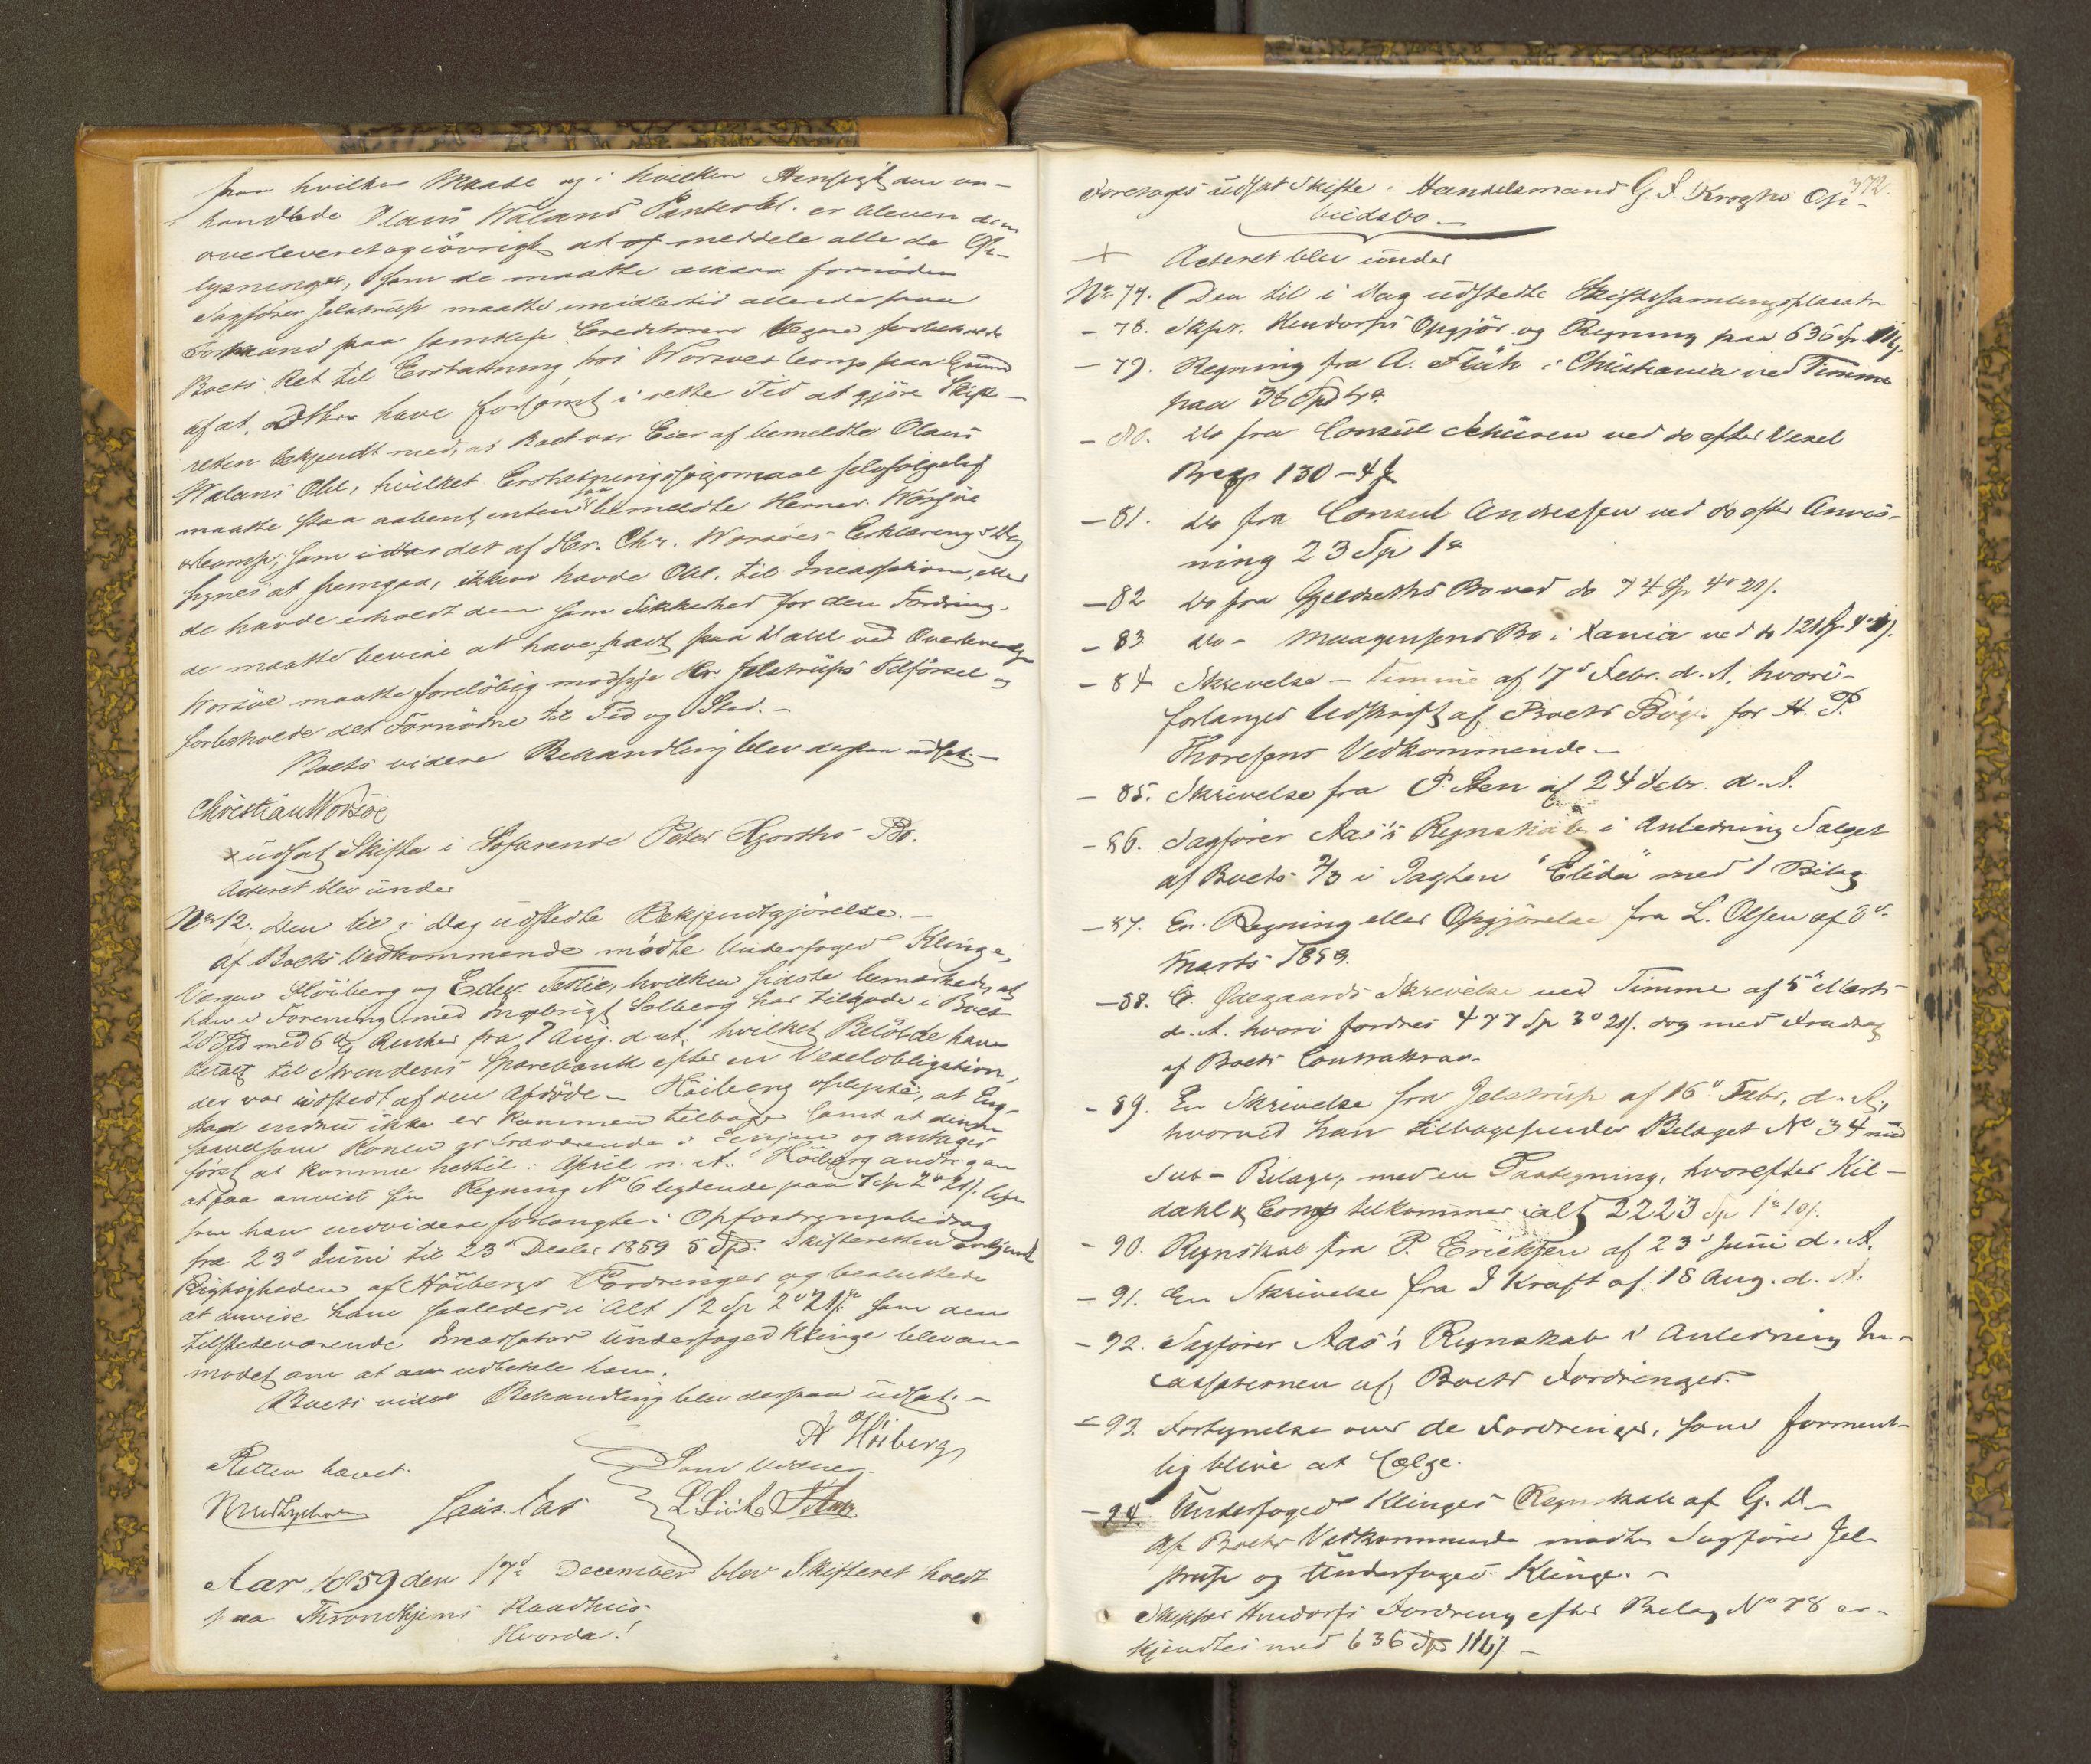 paa hvilken Maade og i hvilken Hensigt den om-
handlede Olaus Walans Panteobl. er bleven dem
overleveret og iövrigt at meddele alle de Op-
lysninger, som de maatte ansaa fornöden
Sagförer Jelstrup maatte imidlertid allerede paa
Forhaand paa samtlige Creditorers Vegne forbeholde
Boets Ret til Erstatning hos Worsöe & Comp paa Grund
af at have forsömt i rette Tid at gjöre Skifte-
retten bekjendt med, at Boet var Eier af bemeldte Olaus
Walans Obl., hvilket Erstatningssögsmaal selvfölgelig
maatte staa aabent, enten bemeldte Herrer Worsöe
& Comp, som det af Hr. Chr. Worsöes Erklæring i Dag
synes at fremgaa, ikkun havde Obl. til Incassation, eller
de havde erholdt den som Sikkerhed for den Fordring,
de maatte bevise at have havt paa Wahl ved Overleverelsen
Worsöe maatte foreløbig modsige Hr. Jelstrups Tilförsel og
forbeholde det Fornödne til Tid og Sted.-
Boets videre Behandling blev derpaa udsat.-
Christian Worsöe
x udsat Skifte i Söfarende Peter Hjorths Bo.
Acteret blev under
No 12. Den til i Dag udstedte Bekjendtgjörelse.-
Af Boets Vedkommende mödte Underfoged Klinge,
Værgen Höiberg og Edev. Teslie, hvilken sidste bemærkede, at
han i Forening med Ingebrigt Solberg har tilgode i Boet
20 Spd med 6 % Renter fra 7 Aug. d. A. hvilket Belöb de have
betalt til Strindens Sparebank efter en Vexelobligation,
der var udstedt af den Afdöde.- Höiberg oplyste, at Eng-
stad endnu ikke er kommen tilbage samt at denne
saavelsom Konen er fraværende i Senjen og antages
först at komme hertil i April n. A. Höiberg androg om
at faa anvist sin Regning No 6 lydende paa 7 Sp 2 # 21 /.
som han endvidere forlangte i Opfostringsbidrag
fra 23d Juni til 23d Decbr 1859 5 Spd. Skifteretten erkjendte
Rigtigheden af Höibergs Fordringer og besluttede
at anvise ham saaledes i Alt 12 Sp 2 # 21 /. som den
tilstedeværende Incassator Underfoged Klinge blev an-
modet om at udbetale ham.
Boets videre Behandling blev derpaa udsat.-
A Höiberg
Retten hævet.
Som Vidner
Aar 1859 den 17d December blev Skifteret holdt
paa Throndhjems Raadhus.
Hvorda!
372.
Foretages udsat Skifte i Handelsmand G. F. Kroghs Op-
budsbo
+ Acteret blev under
No 77. Den til i Dag udstedte Skiftesamlingsplacat
- 78. Skpr. Hendorfs Opgjör og Regning paa 636 Sp.
- 79. Regning fra A. Fluh i Christiania ved Timme
paa 36 Spd 4 #
- 80. Do fra Consul Schüren ved do efter Vexel
130 - 4
- 81. Do fra Consul Andressen ved do efter Anvis-
ning 23 Sp 1 #
- 82 Do fra Gjeldseths Bo ved do 74 Sp 4 # 21 /.
- 83 Do - Maagensens Bo i Xania ved do 121 Sp 4 #
- 84 Skrivelse - Timme af 17d Febr. d. A. hvori
forlanges Udskrift af Boets Böger for H. P.
Thoresens Vedkommende -
- 85. Skrivelse fra P. Aen af 24 Febr. d. A.
- 86. Sagförer Aas's Regnskab i Anledning Salget
af Boets 2/3 i Jagten "Elida" med 1 Bilag
- 87. En Regning eller Opgjörelse fra L. Olsen af 8d
Marts 1859.
- 88. Ödegaards Skrivelse ved Timme af 5d Marts
d. A. hvori fordres 477 Sp 3 # 21 /. dog med Fradrag
af Boets Contrakrav.
- 89. En Skrivelse fra Jelstrup af 16d Febr. d. A.,
hvorved han tilbagesender Belaget No 34 med
Sub-Bilage, med en Paategning, hvorefter Kil-
dahl & Comp tilkommer ialt 2223 Sp 1 # 10 /.
- 90. Regnskab fra P. Ericksen af 23d Juni d. A.
- 91. En Skrivelse fra J Kraft af 18 Aug. d. A.
- 92. Sagförer Aas's Regnskab i Anledning In-
cassationen af Boets Fordringer.
- 93. Fortegnelse over de Fordringer, som forment-
lig blive at sælge.
- 94. Underfoged Klinges Regnskab af G. D.
Af Boets Vedkommende mödte Sagförer Jel-
strup og Underfoged Klinge.-
Skipper Hendorfs Fordring efter Belag No 78 er-
kjendtes med 636 Spd